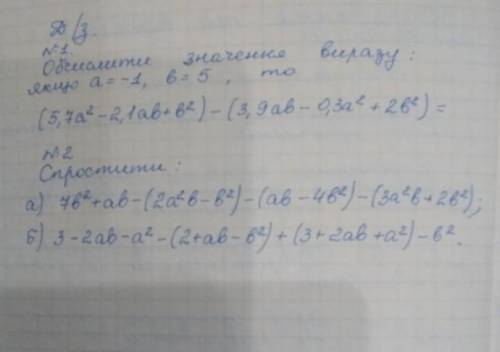 Д/з.
№1.
Обчислити значення виразу:
якщо a = -1, b = 5, то
(5,7a² - 2,1ab + b²) - (3,9ab - 0,3a² + 2b²) =
№2
Спростити:
а) 7b² + ab - (2a²b - b²) - (ab - 4b²) - (3a²b + 2b²);
б) 3 - 2ab - a² - (2 + ab - b²) + (3 + 2ab + a²) - b².